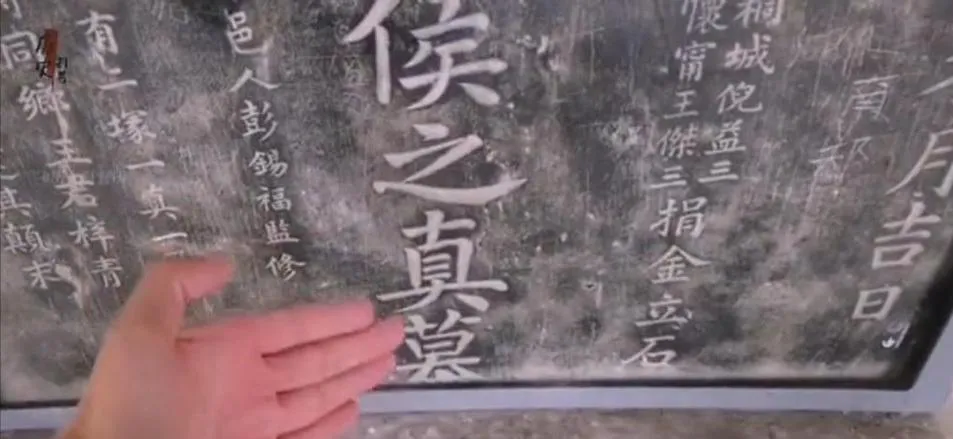 月吉日
桐城倪益三
懷甯王傑三捐金立石
侯之真墓
邑人彭錫福監修
有二塚一真一
同鄉王君梓青
真顛末